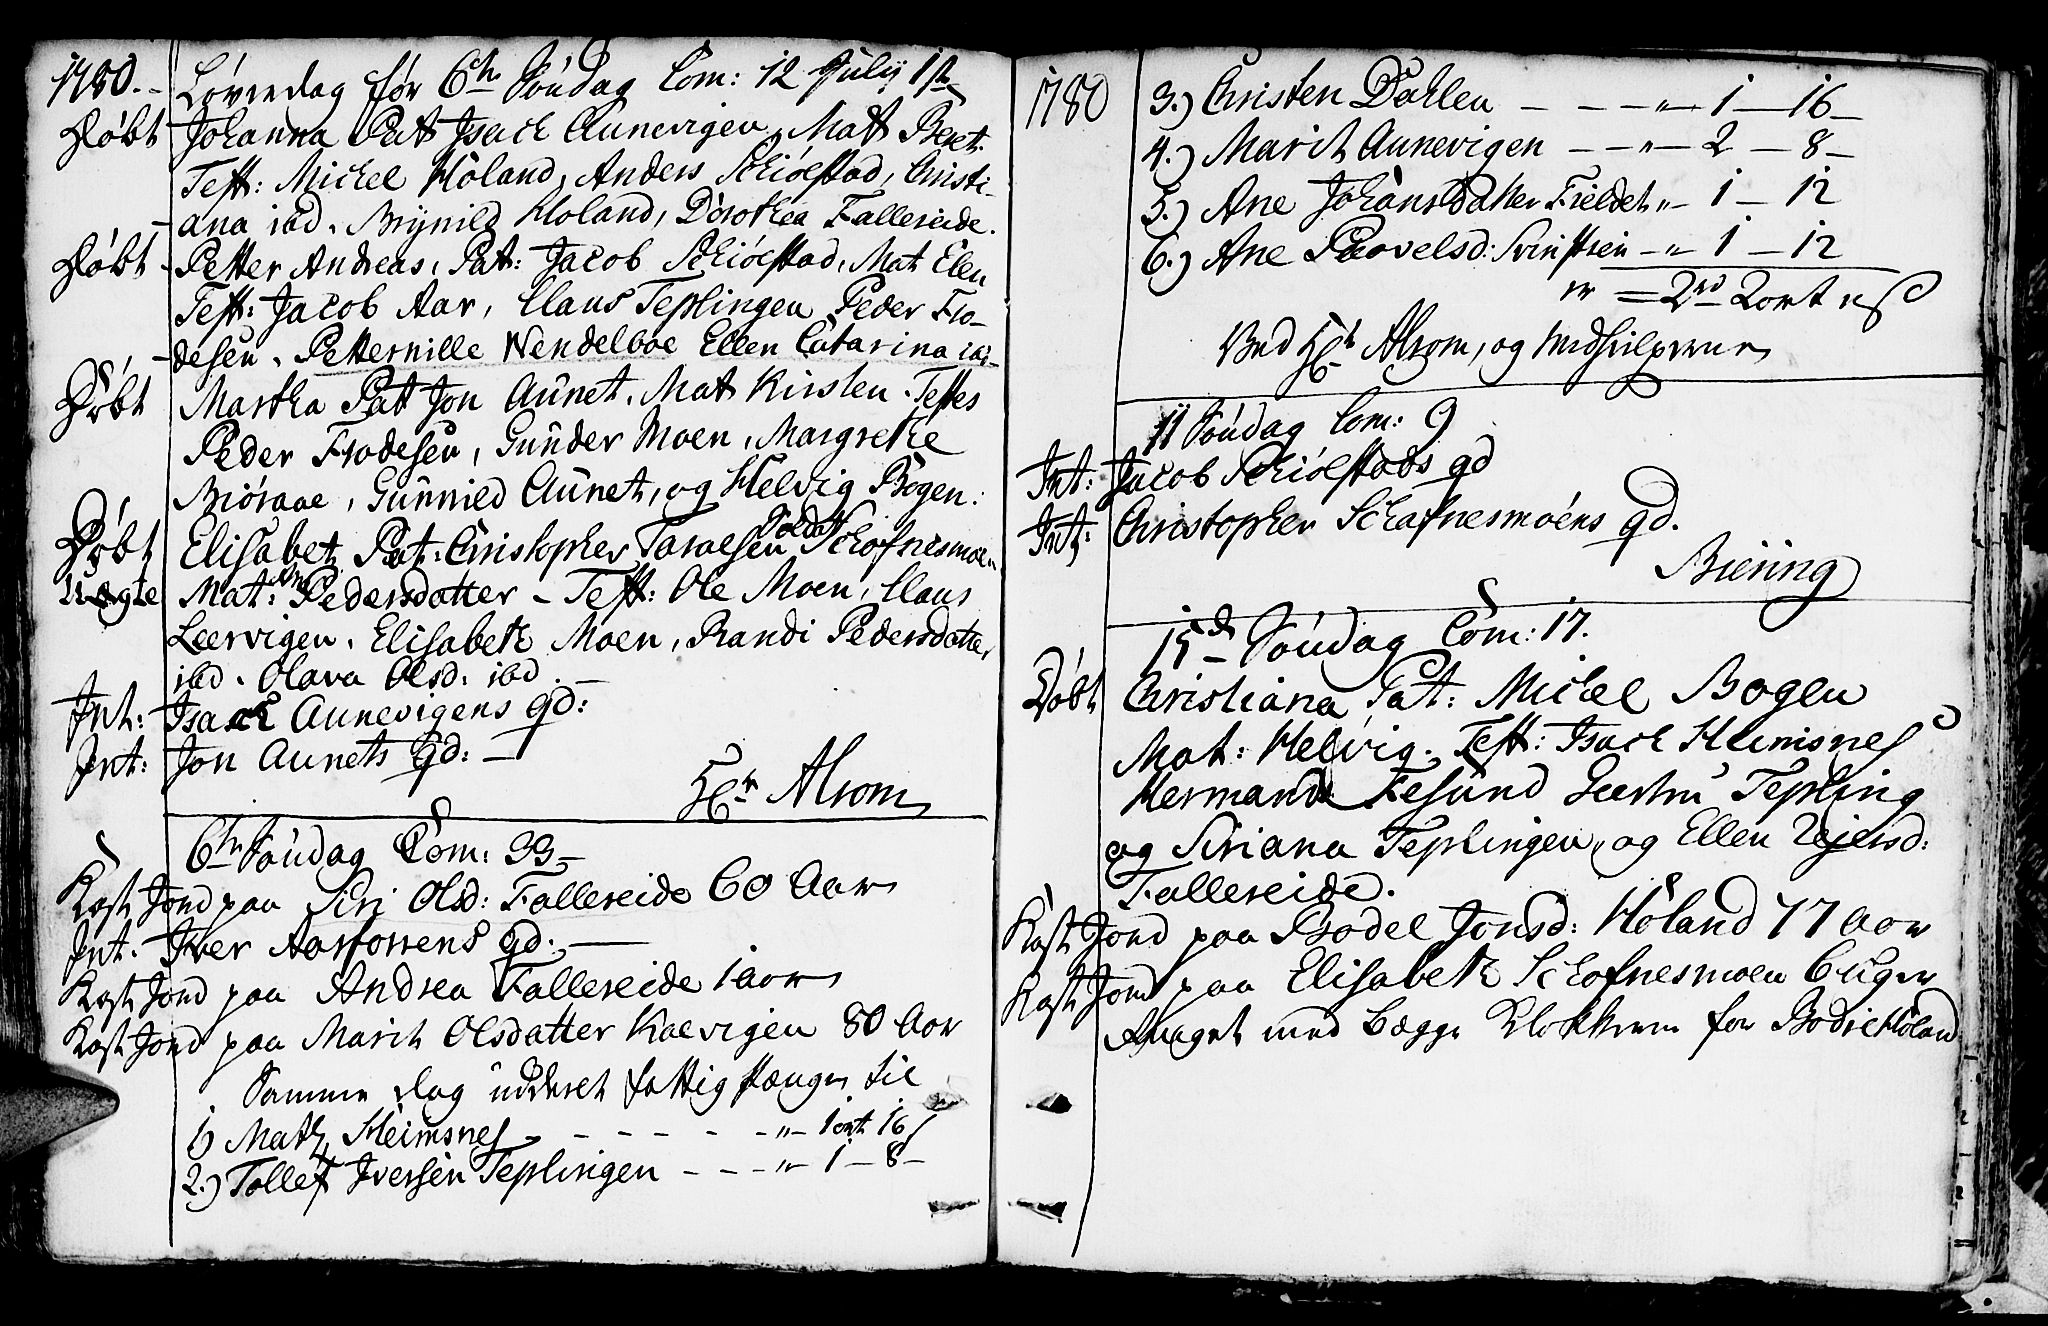 1780.
Løverdag før 6te Søndag Com: 12 July 1ste
Døbt Johanna Pat Isach Aunevigen, Matt Beret.
Test: Michel Høland, Anders Schiølstad, Christi-
ana ibd. Brynild Høland, Dorothea Fallereide.
Døbt Petter Andreas, Pat: Jacob Schiølstad, Mat Elen
Test: Jacob Aar, Claus Teplingen Peder Fro-
desen. Petternille Wendelboe Ellen Catarina ibd-
Døbt Martha Pat Jon Aunet. Mat Kirsten. Testes
Peder Frodesen, Gunder Moen, Margrethe
Biøraae, Gunnild Aunet, og Helvig Bogen:
Døbt Elisabet Pat: Christopher Taraldsen Soldat Schofnesmoen
Uægte Mat: An Pedersdatter - Test: Ole Moen, Claus
Leervigen. Elisabeth Moen, Randi Pedersdatter
ibd. Olava Olsd: ibd.
Int: Isach Aunevigens qd:
Int: Jon Aunets qd: -
Hr Alsom
6te Søndag Com: 33-
Kast Jord paa Siri Olsd: Fallereide 60 Aar
Int. Iver Aarforrens qd.
Kast Jord paa Andrea Fallereide 1 aar
Kast Jord paa Marit Olsdatter Kaevigen 80 Aar
Samme dag uddeelt fattig penge til
1) Math Heimsnes - - - - - „ - 1 ort 16 s
2.) Tollef Iversen Teplingen - - - „ - 1 - 8 -
1780
3.) Christen Dahlen - - - „ - 1 - 16 -
4.) Marit Aunevigen - - „ - 2 - 8 -
5.) Ane Johansdatter Fieldet „ - 1 - 12
6.) Ane Paavelsd: - „ 1 - 12
er = 2rd 2ort 8 s
Ved Hr Alsom, og Medhielperne
11 Søndag Com: 9
Int: Jacob Schiølstads qd
Int: Christopher Schafnesmoens qd.
Biering
15de Søndag Com: 17.
Døbt Christiana Pat: Michel Bogen
Mat: Helvig. Test: Isach Heimsnes
Hermand Fesund Geertru Tepling
og Siriana Teplingen, og Ellen Zejersd:
Fallereide.
Kast Jord paa Bodel Jonsd: Høland 77 Aar
Kast Jord paa Elisabeth Schofnesmoen 6 Uger
med begge Klokkerne for Bodil Høland